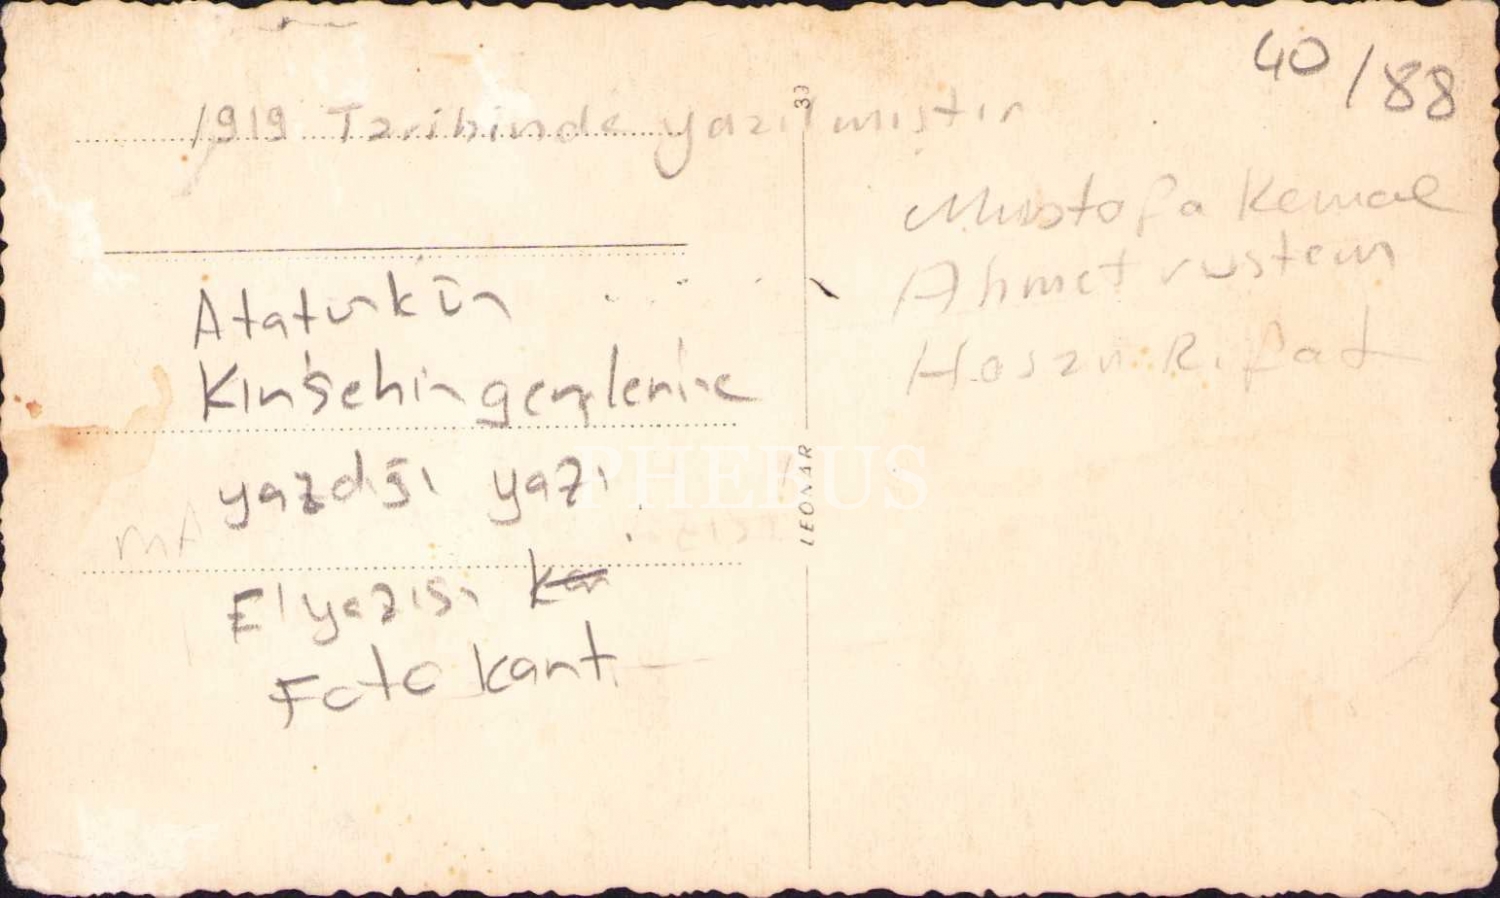 40/88
1919 Tarihinde yazılmıştır
Mustafa Kemal
Ahmet rustem
Hasan Rifat
Ataturkün
Kırşehir gençlerine
yazdığı yazı
El yazısı
Foto kart
LEONAR
PHEBUS